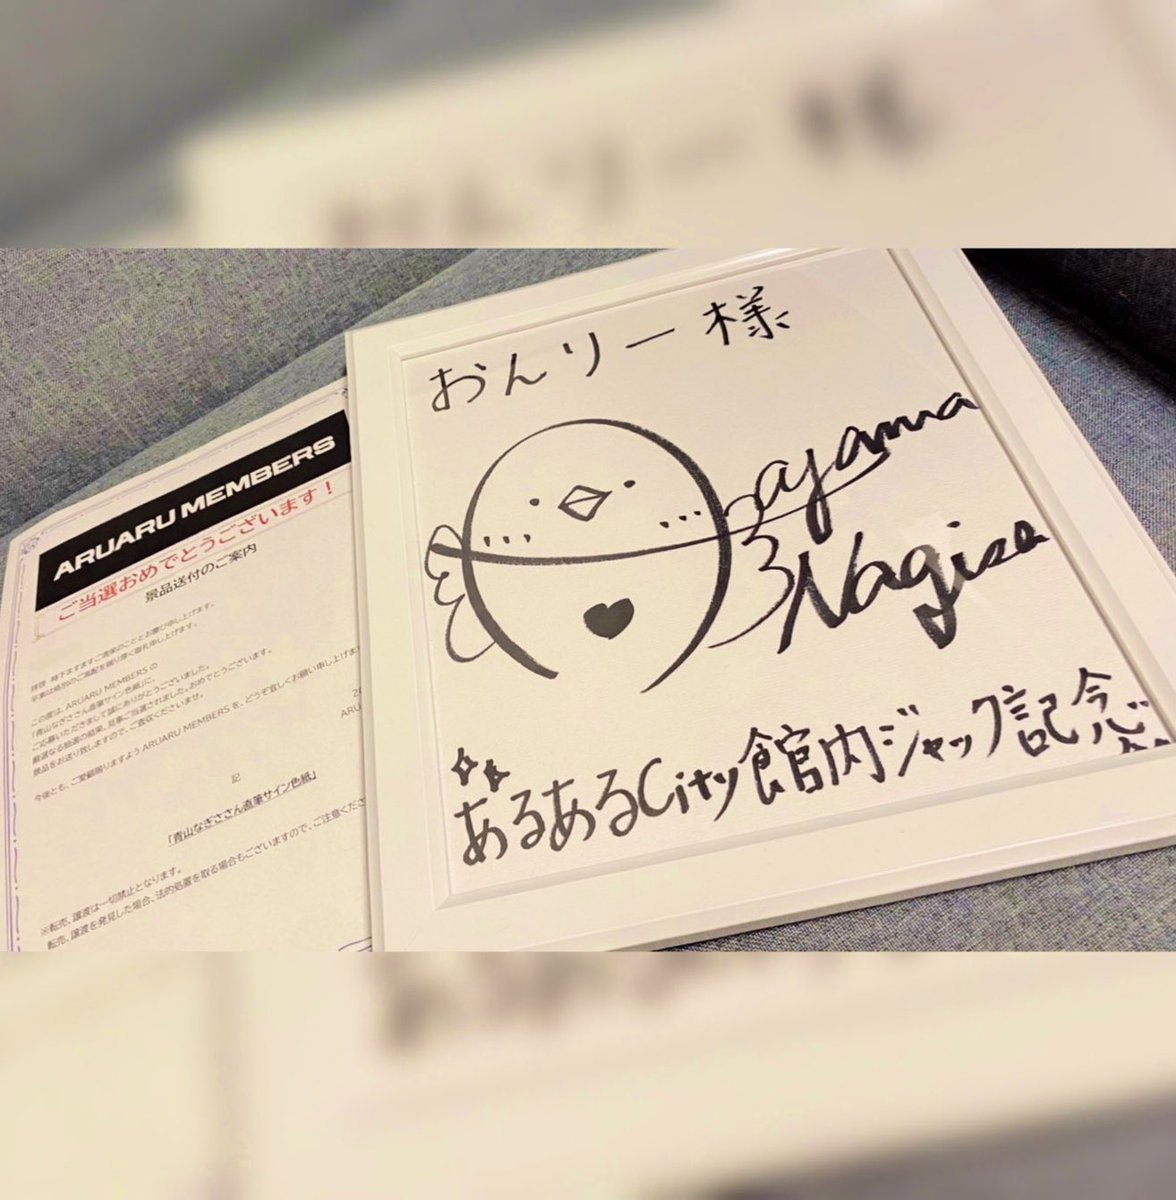 ARUARU MEMBERS
ご当選おめでとうございます！
景品送付のご案内
拝啓 時下ますますご清栄のこととお慶び申し上げます。
平素は格別のご高配を賜り厚く御礼申し上げます。
この度は、ARUARU MEMBERS の
「青山なぎささん直筆サイン色紙」に、
ご応募いただきまして誠にありがとうございました。
厳選なる抽選の結果、見事ご当選されました。おめでとうございます。
景品をお送り致しますので、ご査収くださいませ。
今後とも、ご愛顧賜りますよう ARUARU MEMBERS を、どうぞ宜しくお願い申し上げま
20
ARU
記
「青山なぎささん直筆サイン色紙」
※転売、譲渡は一切禁止となります。
転売、譲渡を発見した場合、法的処置を取る場合もございますので、ご注意くださ
おんりー様
aoyama
Nagisa
あるあるCity館内ジャック記念